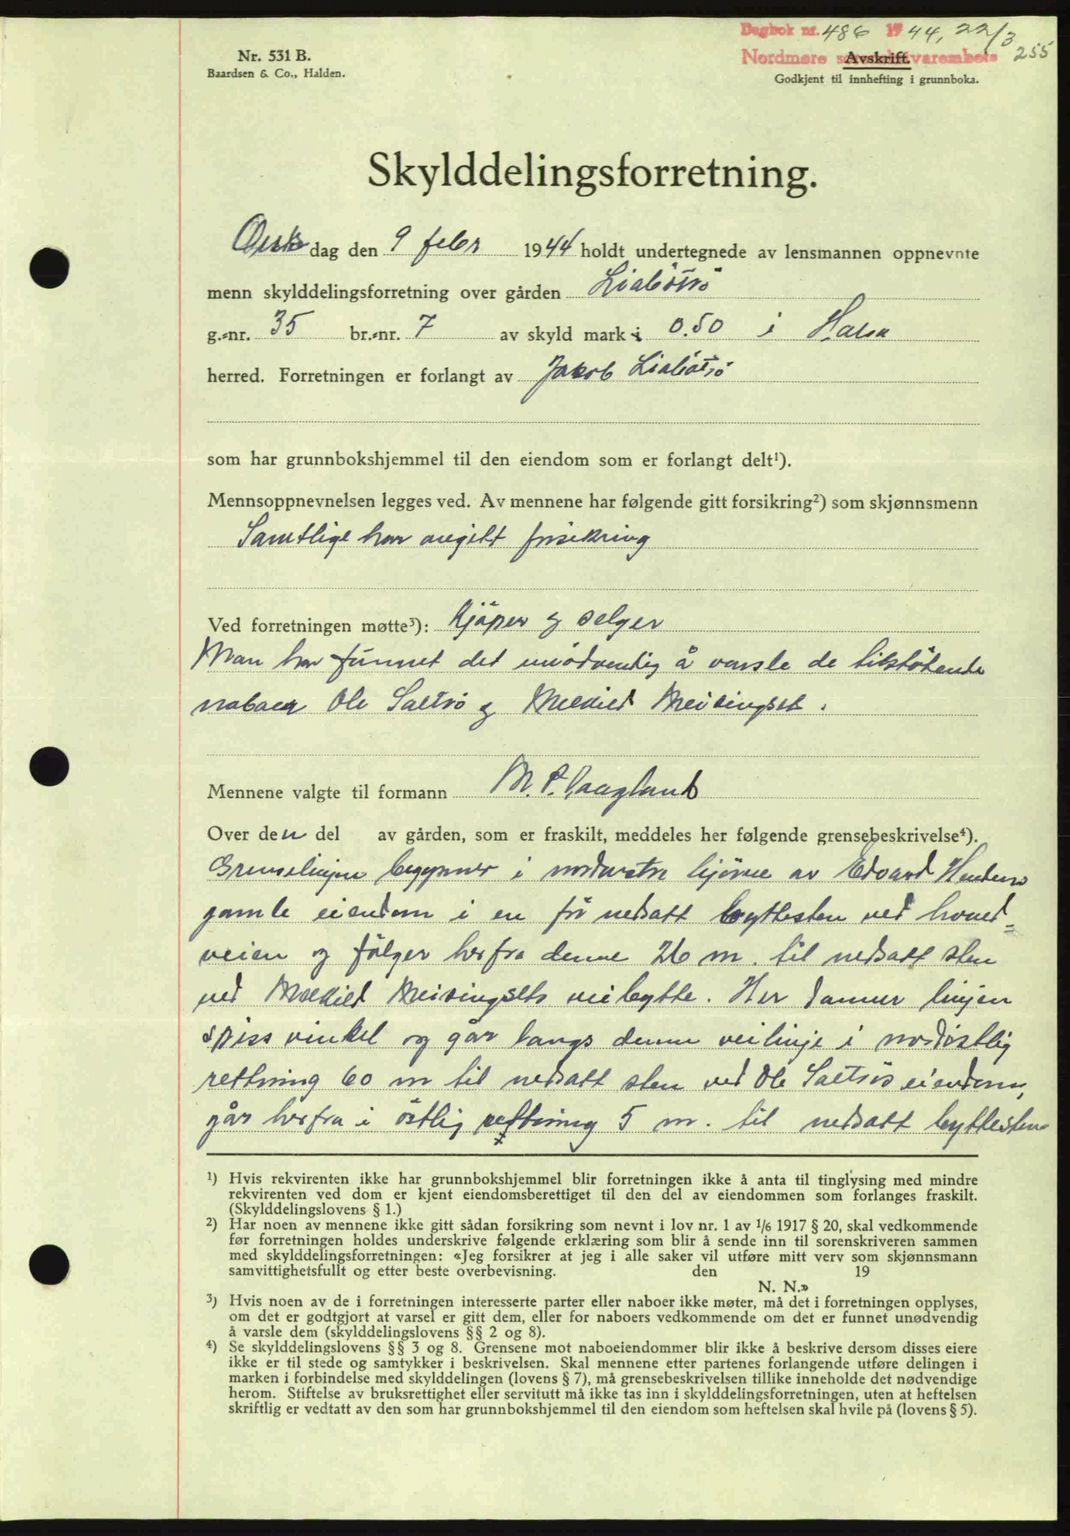 Dagbok nr. 486 1944, 22/3
Nordmøre sorenskriverembete 255
Nr. 531 B.
Baardsen & Co., Halden.
Avskrift.
Godkjent til innhefting i grunnboka.
Skylddelingsforretning.
Onsdag den 9 febr 1944 holdt undertegnede av lensmannen oppnevnte
menn skylddelingsforretning over gården Liabötrö
g.-nr. 35 br.-nr. 7 av skyld mark 0.50 i Halsa
herred. Forretningen er forlangt av Jakob Liabötrö
som har grunnbokshjemmel til den eiendom som er forlangt delt¹).
Mennsoppnevnelsen legges ved. Av mennene har følgende gitt forsikring²) som skjønnsmenn
Samtlige har avgitt forsikring
Ved forretningen møtte³): Kjöper og selger
Man har funnet det unödvendig å varsle de tilstötende
naboer Ole Saltrö og Meisingset.
Mennene valgte til formann M. P. Vaagland
Over den del av gården, som er fraskilt, meddeles her følgende grensebeskrivelse⁴).
Grenselinjen begynner i nordvestre hjörne av Edvard
gamle eiendom i en för nedsatt byttesten ved hoved=
veien og fölger herfra denne 26 m. til nedsatt sten
ved Meisingsets veibytte. Her danner linjen
spiss vinkel og går langs denne veilinje i nordöstlig
rettning 60 m til nedsatt sten ved Ole Saltrös eiendom,
går herfra i östlig rettning 5 m. til nedsatt byttesten
¹) Hvis rekvirenten ikke har grunnbokshjemmel blir forretningen ikke å anta til tinglysing med mindre
rekvirenten ved dom er kjent eiendomsberettiget til den del av eiendommen som forlanges fraskilt.
(Skylddelingslovens § 1.)
²) Har noen av mennene ikke gitt sådan forsikring som nevnt i lov nr. 1 av 1/6 1917 § 20, skal vedkommende
før forretningen holdes underskrive følgende erklæring som blir å sende inn til sorenskriveren sammen
med skylddelingsforretningen: «Jeg forsikrer at jeg i alle saker vil utføre mitt verv som skjønnsmann
samvittighetsfullt og etter beste overbevisning. den 19
N. N.»
³) Hvis noen av de i forretningen interesserte parter eller naboer ikke møter, må det i forretningen opplyses,
om det er godtgjort at varsel er gitt dem, eller for naboers vedkommende om det er funnet unødvendig
å varsle dem (skylddelingslovens §§ 2 og 8).
⁴) Se skylddelingslovens §§ 3 og 8. Grensene mot naboeiendommer blir ikke å beskrive dersom disses eiere
ikke er til stede og samtykker i beskrivelsen. Skal mennene etter partenes forlangende utføre delingen i
marken i forbindelse med skylddelingen (lovens § 7), må grensebeskrivelsen tillike inneholde det nødvendige
herom. Stiftelse av bruksrettighet eller servitutt må ikke tas inn i skylddelingsforretningen, uten at heftelsen
skriftlig er vedtatt av den som har grunnbokshjemmel til den eiendom som heftelsen skal hvile på (lovens § 5).